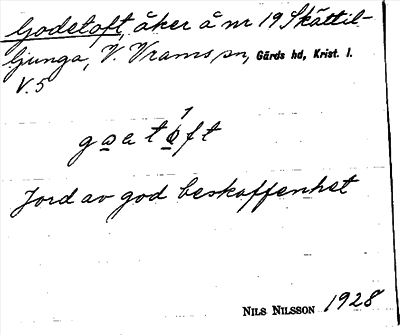 Godetoft, åker å nr 19 Skättil-
ljunga, V. Vrams sn, Gärds hd, Krist. l.
V.5
Jord av god beskaffenhet
NILS NILSSON 1928